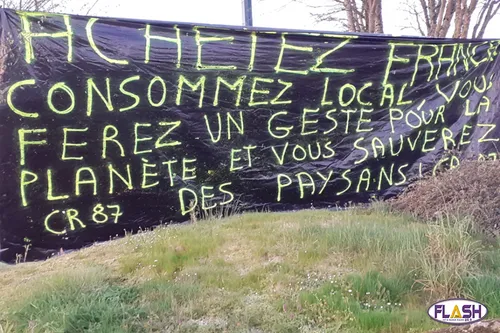 ACHETEZ FRANÇ
CONSOMMEZ LOCAL VOUS
FEREZ UN GESTE POUR LA
PLANÈTE ET VOUS SAUVEREZ
CR 87 DES PAYSANS!
FLASH